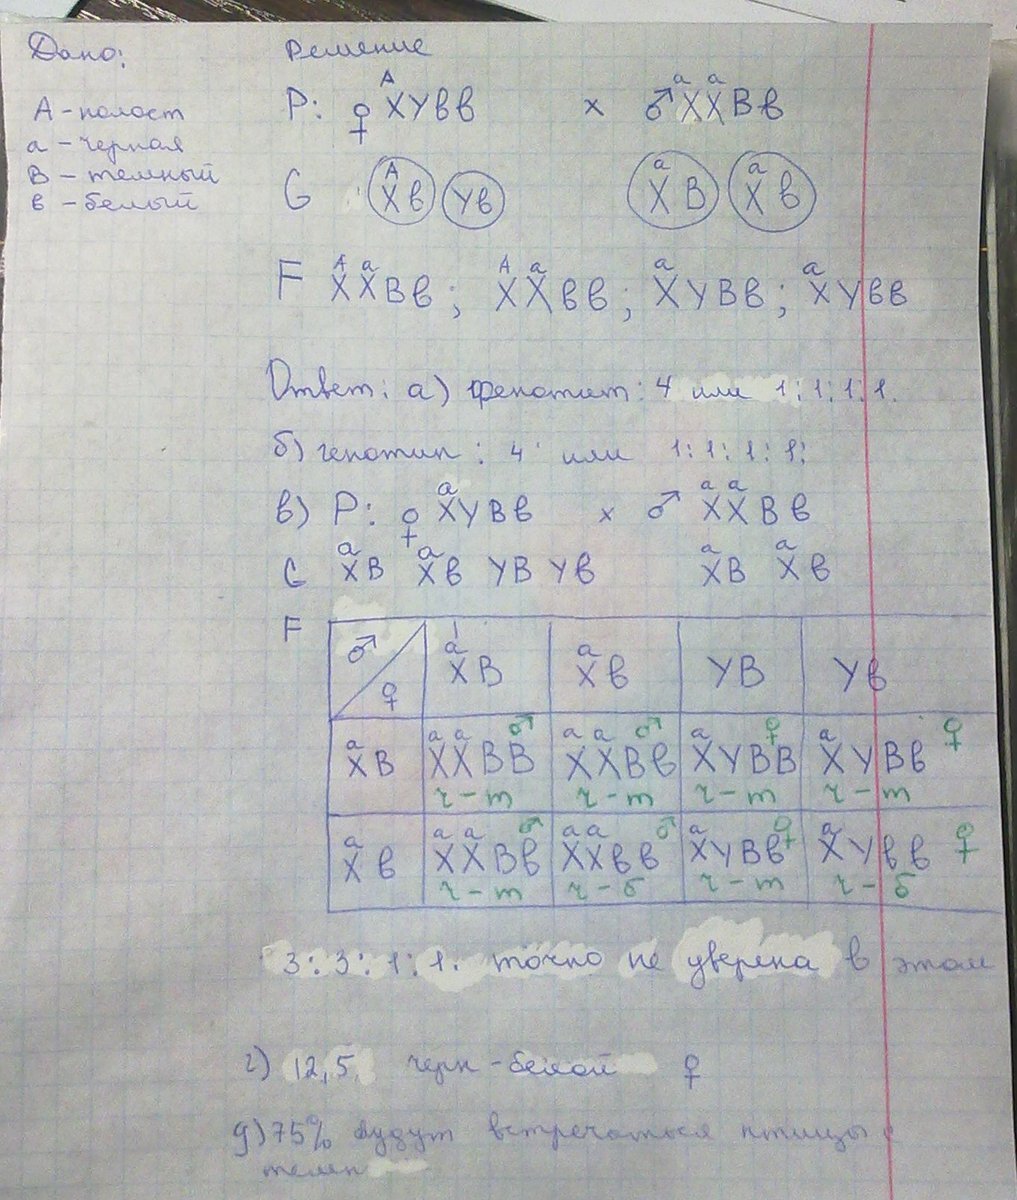 Дано:
Решение
А - полост
а - черная
В - темный
в - белый
P: ♀ XᴬYвв x ♂ XᵃXᵃВв
G Xᴬв Yв XᵃВ Xᵃв
F XᴬXᵃВв; XᴬXᵃвв; XᵃYВв; XᵃYвв
Ответ: а) фенотип: 4 или 1:1:1:1.
б) генотип: 4 или 1:1:1:1:
в) P: ♀ XᵃYВв x ♂ XᵃXᵃВв
G XᵃВ Xᵃв YВ Yв XᵃВ Xᵃв
F
♂ / ♀ XᵃВ Xᵃв YВ Yв
XᵃВ XᵃXᵃВВ ♂ XᵃXᵃВв ♂ XᵃYВВ ♀ XᵃYВв ♀
ч-т ч-т ч-т ч-т
Xᵃв XᵃXᵃВв ♂ XᵃXᵃвв ♂ XᵃYВв ♀ XᵃYвв ♀
ч-т ч-б ч-т ч-б
3:3:1:1. точно не уверена в этом
г) 12,5 черн-белой ♀
д) 75% будут встречаться птицы с
темн